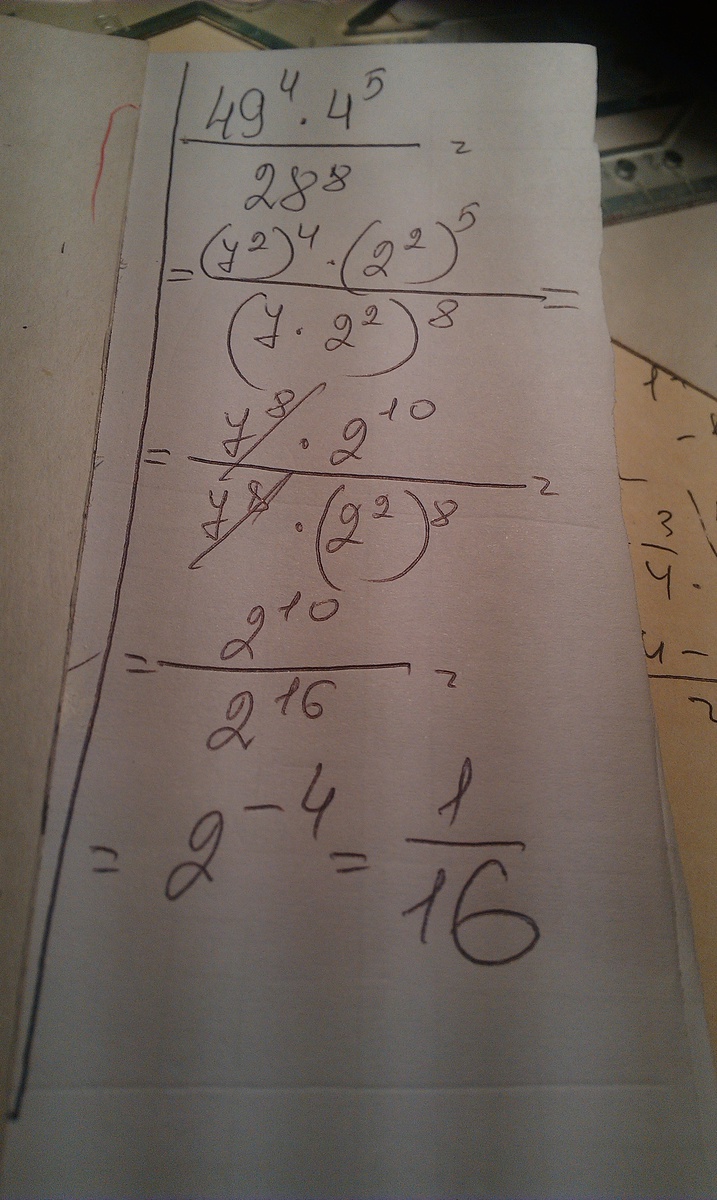 49⁴ · 4⁵ / 28⁸ =
= (7²)⁴ · (2²)⁵ / (7 · 2²)⁸ =
= 7⁸ · 2¹⁰ / 7⁸ · (2²)⁸ =
= 2¹⁰ / 2¹⁶ =
= 2⁻⁴ = 1 / 16
3/4 ·